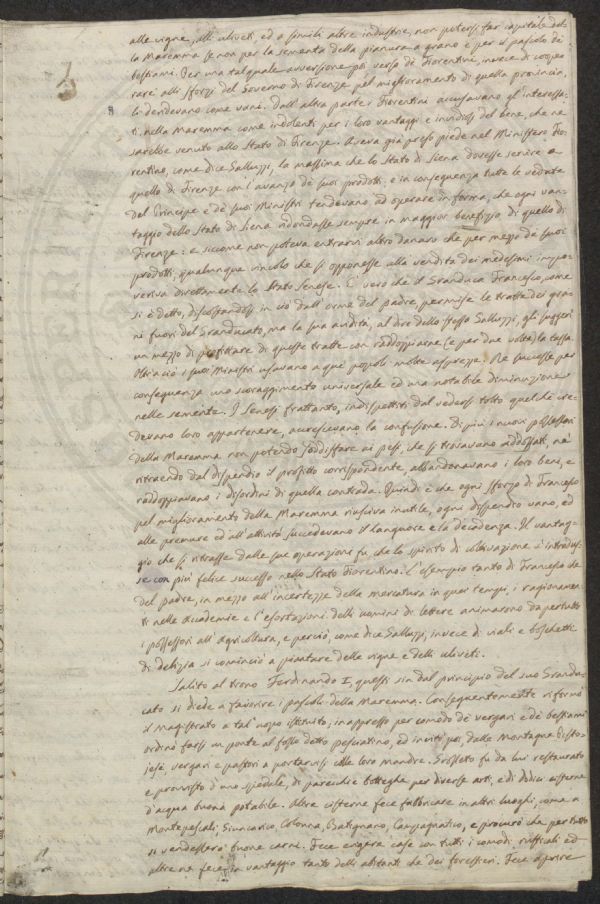 alle vigne, alli uliveti, ed a simili altre industrie, non potersi far capitale del-
la Maremma se non per la sementa della pianura a grano e per il pascolo de
bestiami. Per una tal quale avversione poi verso de Fiorentini, invece di coope
rare alli sforzi del Governo di Firenze pel miglioramento di quella provincia,
li deridevano come vani. Dall' altra parte i Fiorentini accusavano gl' interessa-
ti nella Maremma come indolenti per i loro vantaggi e invidiosi del bene, che ne
sarebbe venuto allo Stato di Firenze. Aveva già preso piede nel Ministero Fio-
rentino, come dice Galluzzi, la massima che lo Stato di Siena dovesse servire a
quello di Firenze con l' avanzo de suoi prodotti: e in conseguenza tutte le vedute
del Principe e de suoi Ministri tendevano ad operare in forma, che ogni van-
taggio dello Stato di Siena ridondasse sempre in maggior benefizio di quello di
Firenze: e siccome non poteva entrarvi altro danaro che per mezzo de suoi
prodotti, qualunque vincolo che si opponesse alla vendita dei medesimi impo-
veriva direttamente lo Stato Senese. E' vero che il Granduca Francesco, come
si è detto, discostandosi in ciò dall' orme del padre, permise le tratte dei gra-
ni fuori del Granducato, ma la sua avidità, al dire dello stesso Galluzzi, gli suggerì
un mezzo di profittare di queste tratte con raddoppiarne (e per due volte) la tassa.
Oltraciò i suoi Ministri usavano a que' popoli molte asprezze. Ne successe per
conseguenza uno scoraggimento universale ed una notabile diminuzione
nelle semente. I Senesi frattanto, indispettiti dal vedersi tolto quel che cre-
devano loro appartenere, accrescevano la confusione. Di più i nuovi possessori
della Maremma non potendo soddisfare ai pesi, che si trovavano addossati, nè
ritraendo dal dispendio il profitto corrispondente, abbandonavano i loro beni, e
raddoppiavano i disordini di quella contrada. Quindi è che ogni sforzo di Francesco
pel miglioramento della Maremma riusciva inutile, ogni dispendio vano, ed
alle premure ed all' attività succedevano il languore e la decadenza. Il vantag-
gio che si ritrasse dalle sue operazioni fu, che lo spirito di coltivazione s' introdus-
se con più felice successo nello Stato Fiorentino. L' esempio tanto di Francesco che
del padre, in mezzo all' incertezze della mercatura in quei tempi, i ragionamen
ti nelle Accademie e l' esortazioni delli uomini di lettere animarono da per tutto
i possessori all' agricoltura, e perciò, come dice Galluzzi, invece di viali e boschetti
di delizia si cominciò a piantare delle vigne e delli uliveti.
Salito al trono Ferdinando I, questi sin dal principio del suo Grandu-
cato si diede a favorire i pascoli della Maremma. Conseguentemente riformò
il magistrato a tal uopo istituito; inappresso per comodo de vergari e de bestiami
ordinò farsi un ponte al fosso detto pesciatino, ed invitò poi dalle Montagne Pisto-
jesi, vergari e pastori a portarvisi colle loro mandre. Grosseto fu da lui restaurato
e provvisto d' uno spedale, di parecchie botteghe per diverse arti, e di dodici cisterne
d' acqua buona potabile. Altre cisterne fece fabbricare in altri luoghi, come a
Montepescali, Giuncarico, Colonna, Batignano, Campagnatico, e procurò che per tutto
si vendessero buone carni. Fece erigere case con tutti i comodi rusticali ed
altre ne fece in vantaggio tanto delli abitanti che dei forestieri. Fece aprire